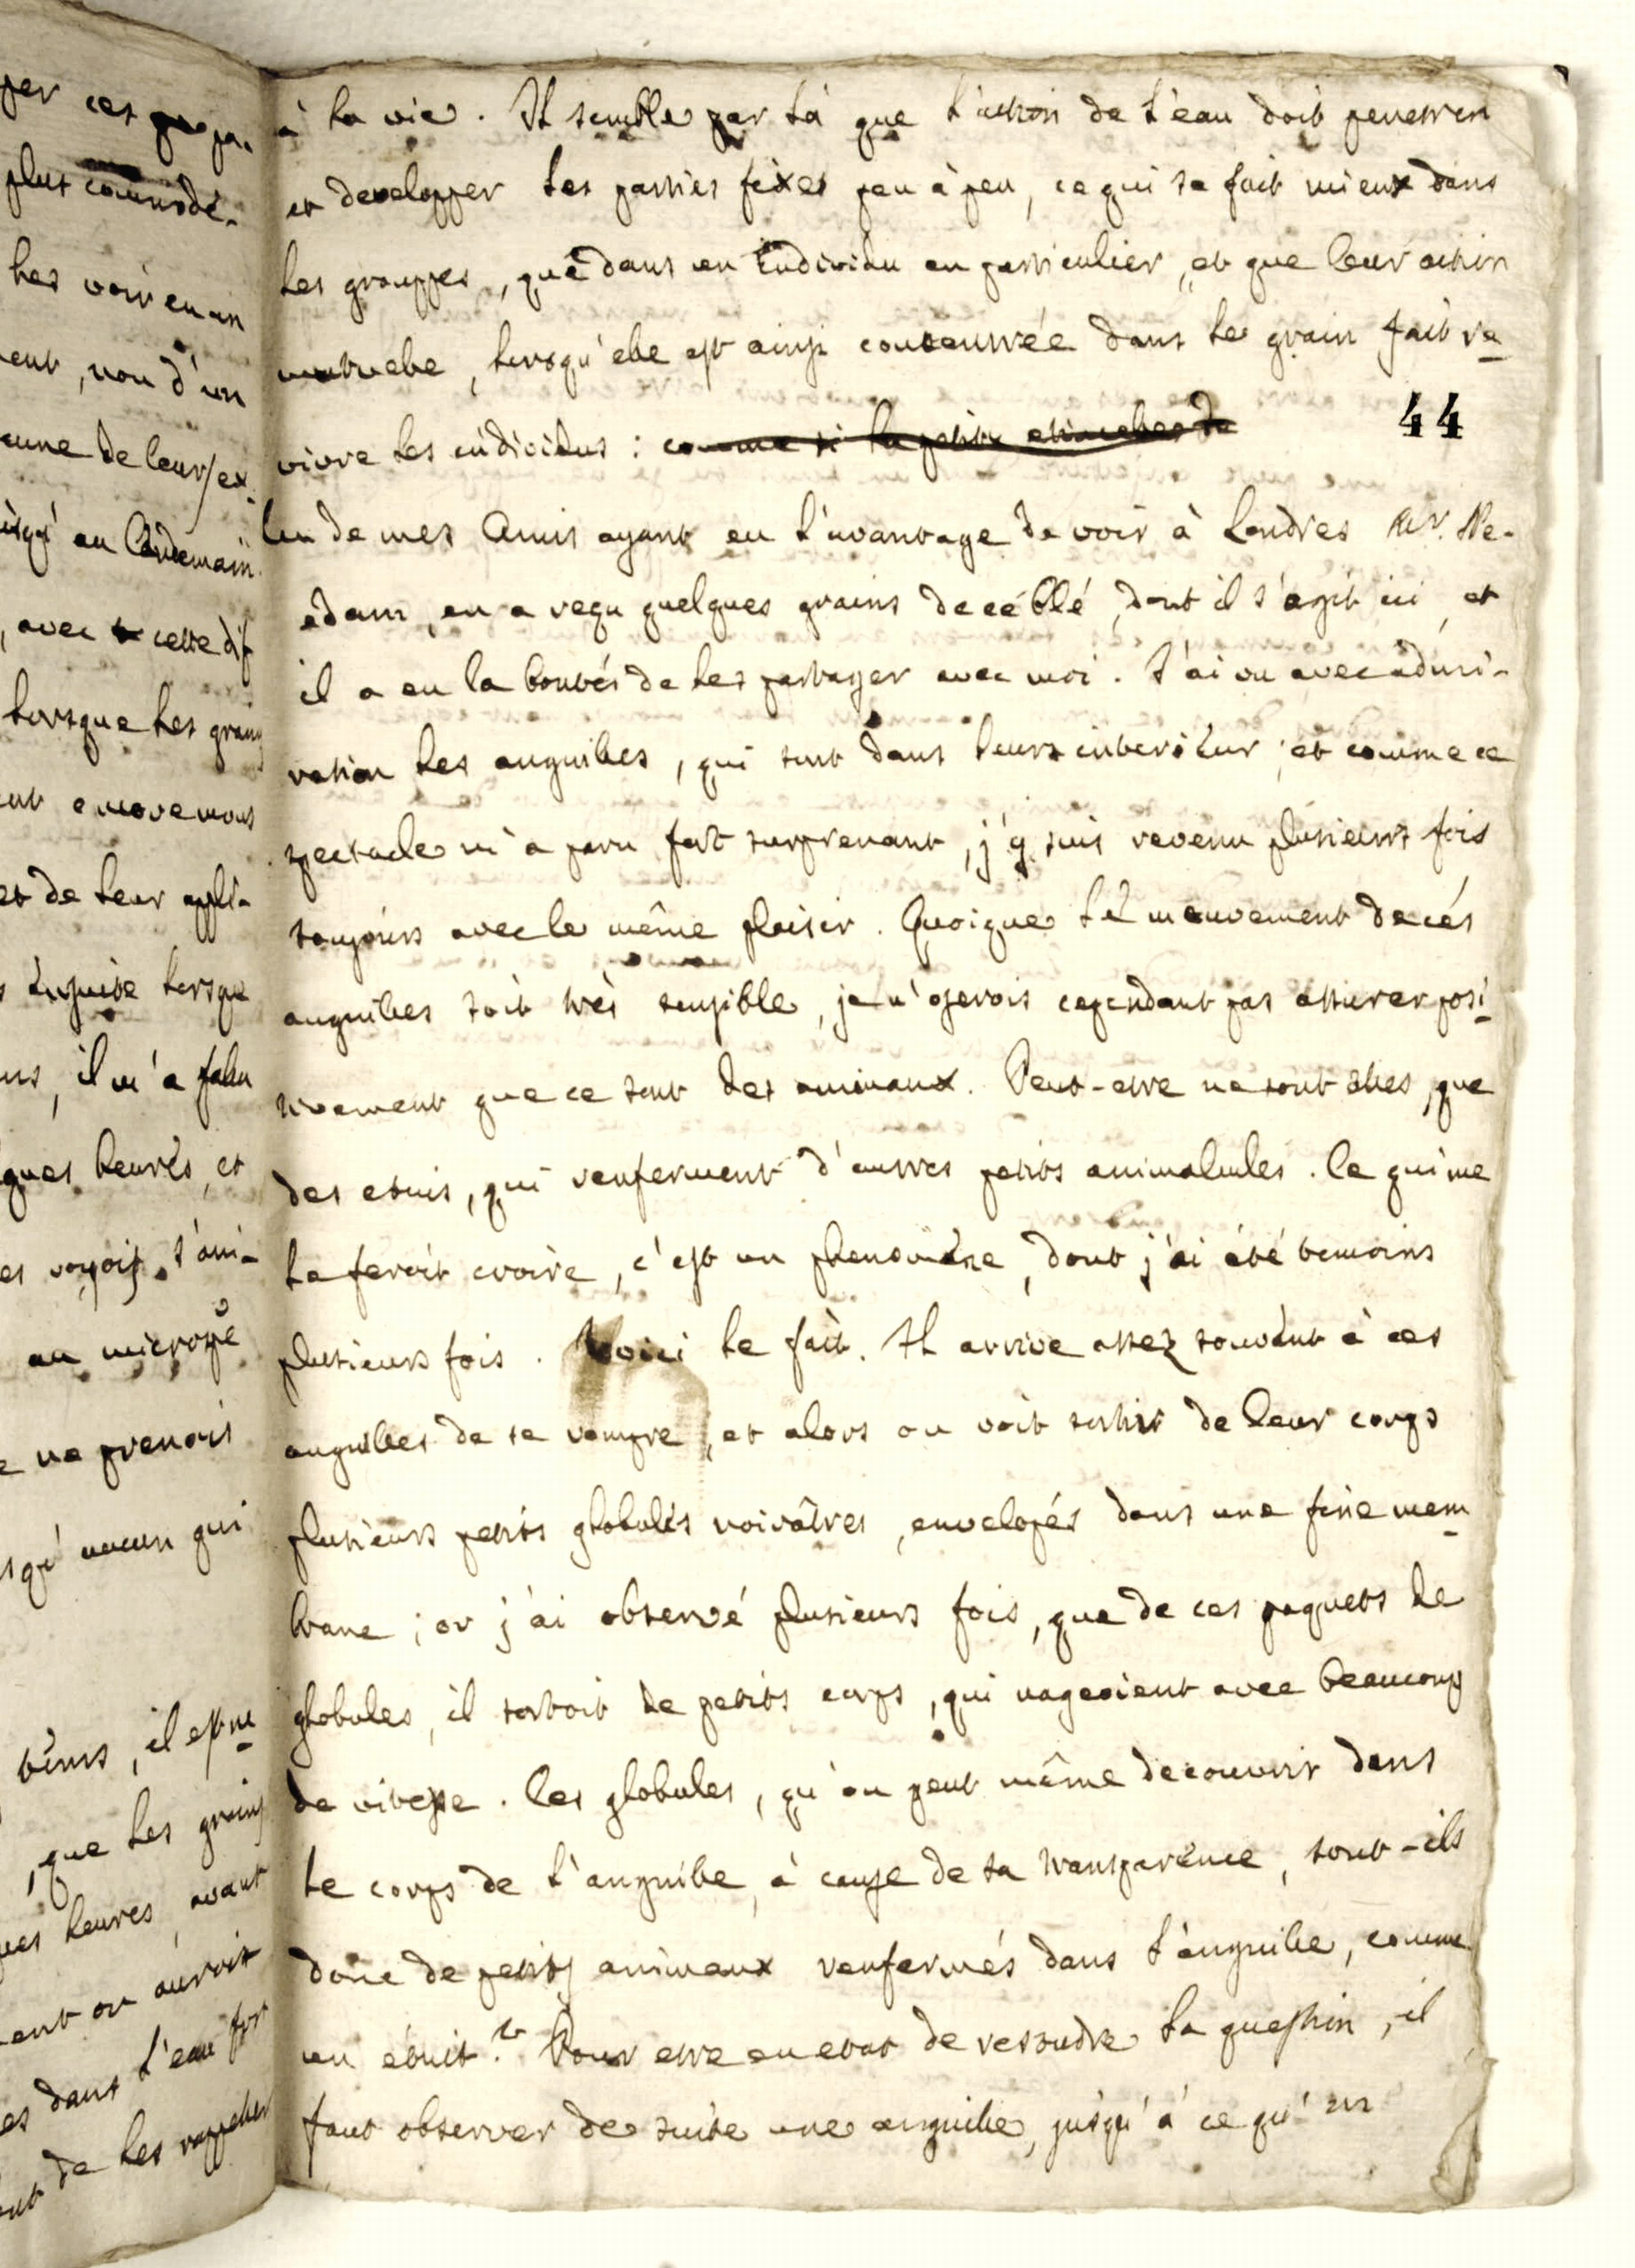 à la vie. Il semble par là que l'action de l'eau doit penetrer
et developper les parties fixes peu à peu, ce qui se fait mieux dans
les grouppes, que dans un individu en particulier, et que leur action
mutuelle, lorsqu'elle est ainsi concentrée dans le grain fait re
vivre les individus : comme si la petite etincelles de
44
Un de mes Amis ayant eu l'avantage de voir à Londres Mr. Ne-
edam, en a reçu quelques grains de ce blé, dont il s'agit ici, et
il a eu la bontés de les partager avec moi. J'ai vu avec admi-
ration les anguilles, qui sont dans leurs interieur ; et comme ce
spectacle m'a paru fort surprenant, j'y suis revenu plusieurs fois
toujours avec le même plaisir. Quoique le mouvement de ces
anguilles soit très sensible, je n'oserois cependant pas assurer posi
tivement que ce sont des animaux. Peut-etre ne sont elles, que
des etuis, qui renferment d'autres petits animalcules. Ce qui me
le feroit croire, c'est un phenomène, dont j'ai été temoins
plusieurs fois. Voici le fait. Il arrive assez souvent à ces
anguilles de se rompre, et alors on voit sortir de leur corps
plusieurs petits globules noirâtres, envelopés dans une fine mem
brane ; or j'ai observé plusieurs fois, que de ces paquets de
globules, il sortoit de petits corps, qui nageoient avec beaucoup
de vitesse. Ces globules, qu'on peut même decouvrir dans
le corps de l'anguille, à cause de sa transparence, sont-ils
donc de petits animaux renfermés dans l'anguille, comme
un étuit ? Pour etre en etat de resoudre la question, il
faut observer de suite une anguille, jusqu'à ce qu'un
per ces
plus commodé-
les voir en un
ent, non d'un
cune de leurs ex
usqu'au lendemain
, avec cette dif
lorsque les grains
et de leur appli-
ensuite lorsque
ns, il m'a falu
ques heures, et
es voyois s'ani-
au microspe
e ne prenois
squ'aucun qui
, il est ne
, que les grains
ues heures, avant
ent on auroit
es dans l'eau for
ent de les rappeller